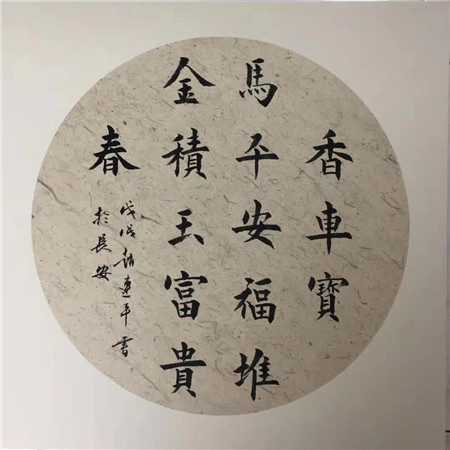 香車寶
馬平安福堆
金積玉富貴
春
戊戌趙連平書
於長安